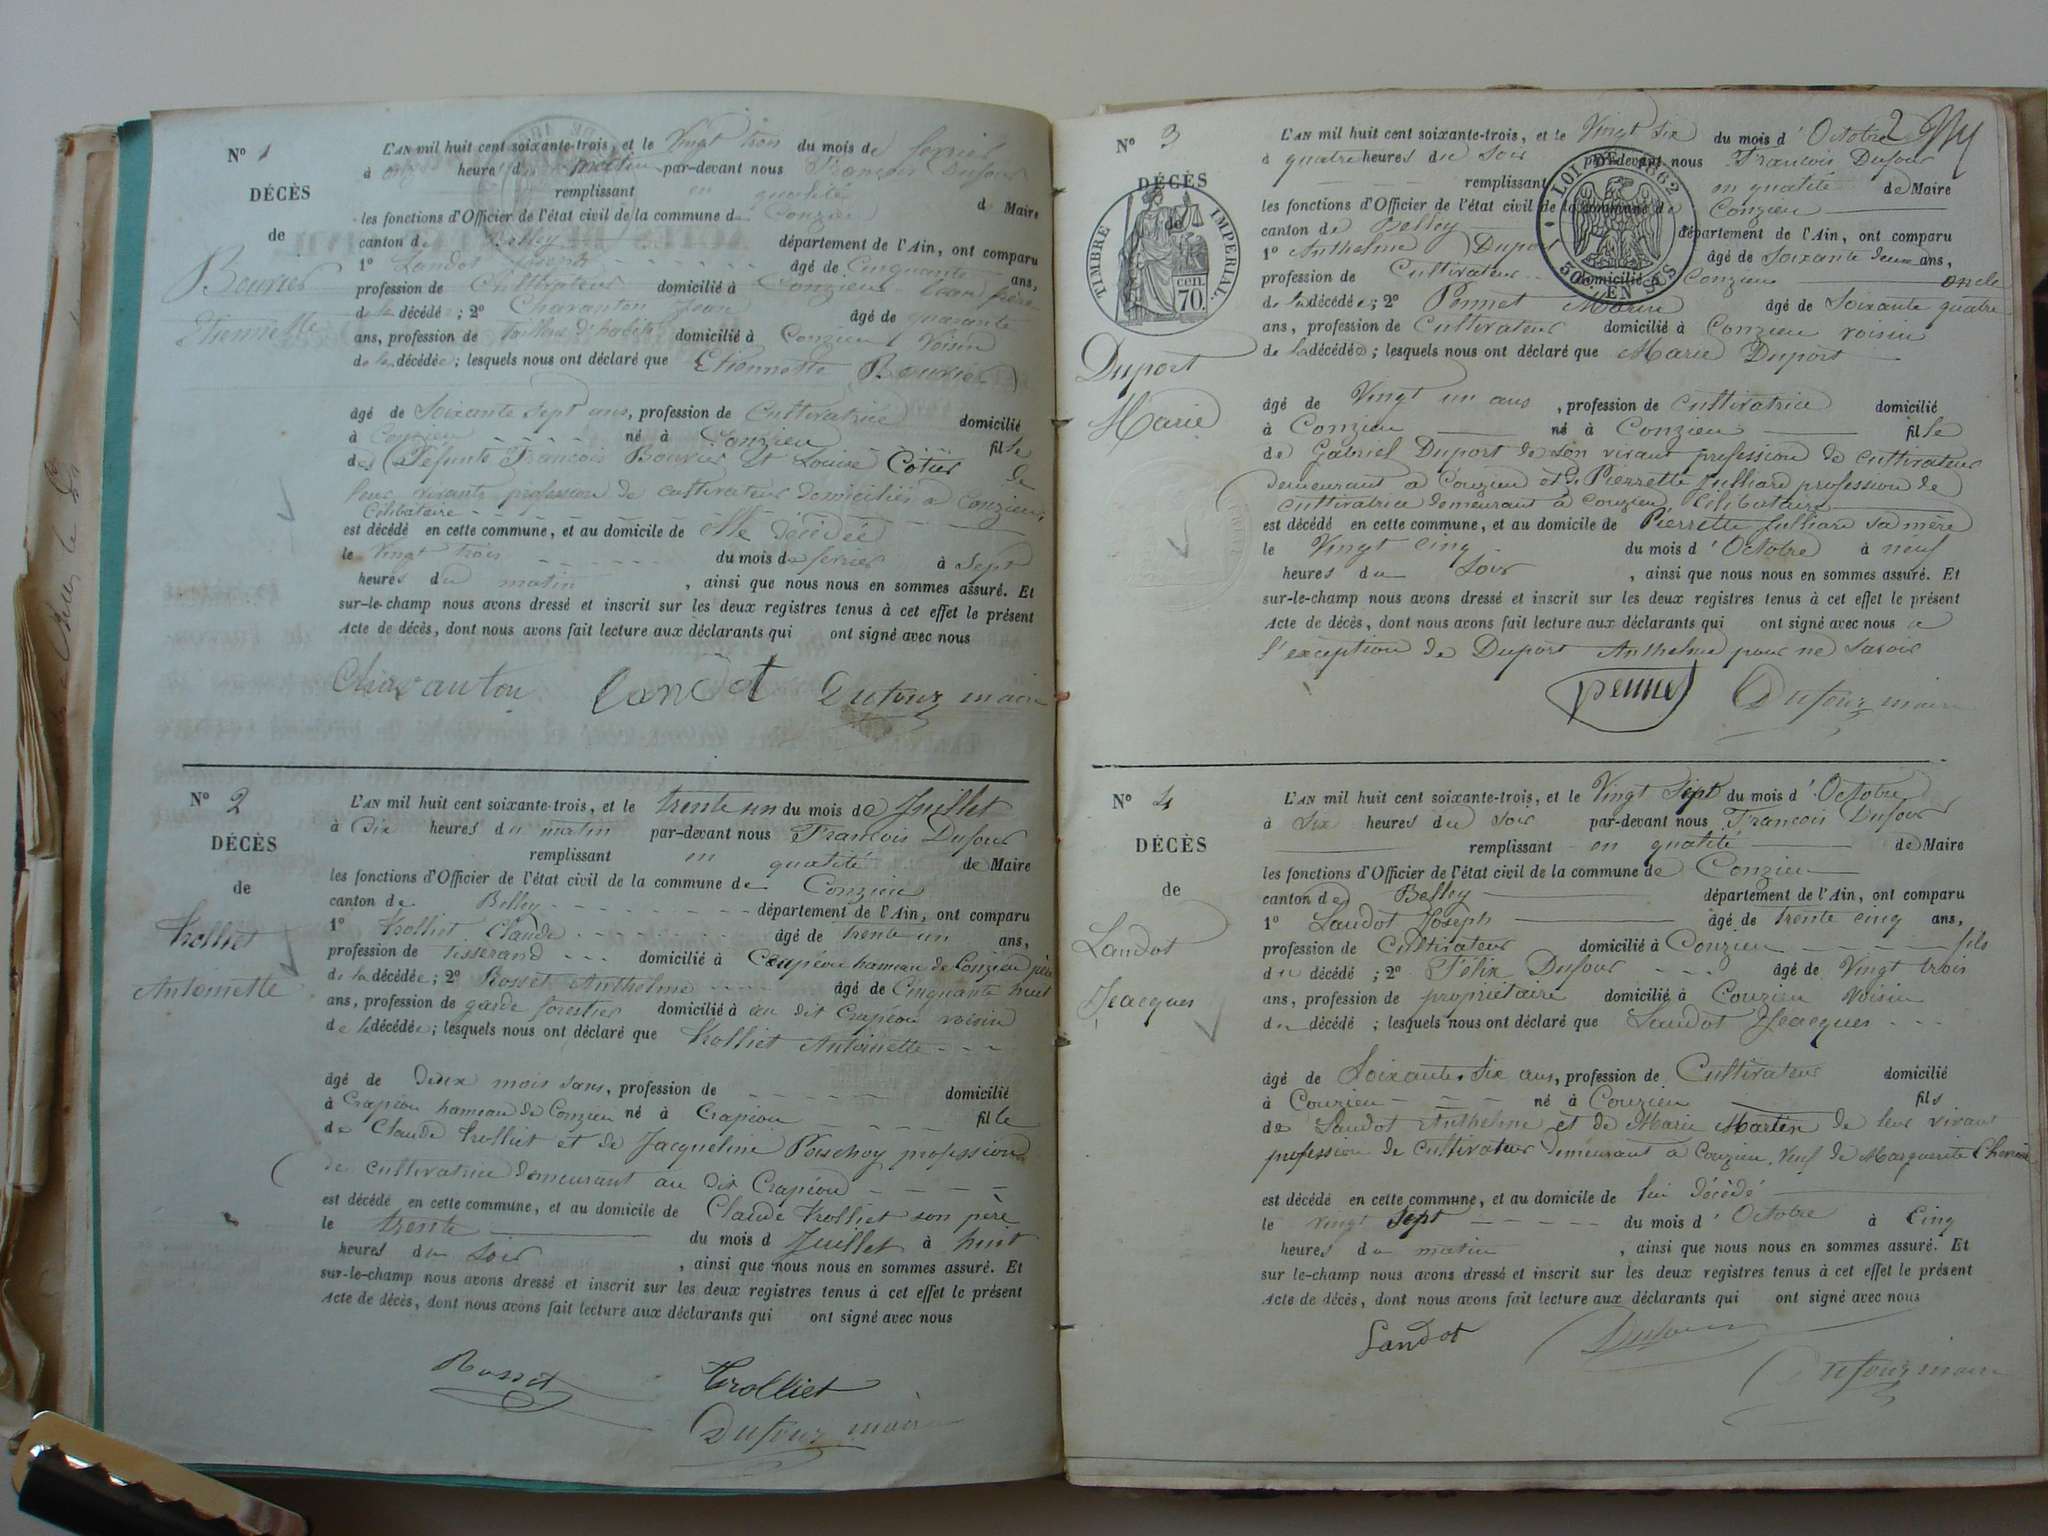 N° 1
DÉCÈS
de
Bouvier
Etiennette
L'AN mil huit cent soixante-trois, et le Vingt trois du mois de fevrier
à onze heure du matin par-devant nous François Dufour
remplissant en qualité de Maire
les fonctions d'Officier de l'état civil de la commune de Conzieu
canton de Belley département de l'Ain, ont comparu
1° Landot Joseph âgé de Cinquante ans,
profession de Cultivateur domicilié à Conzieu beau frère
de la décédée; 2° Charanton Jean âgé de quarante
ans, profession de tailleur d'habits domicilié à Conzieu Voisin
de la décédée; lesquels nous ont déclaré que Etiennette Bouvier
âgé de Soixante sept ans, profession de Cultivatrice domicilié
à Conzieu né à Conzieu fille
des Défunts François Bouvier et Louise Cotier de
leur vivants profession de cultivateur domiciliés à Conzieu,
Célibataire
est décédé en cette commune, et au domicile de elle décédée
le Vingt trois du mois de février à Sept
heures du matin, ainsi que nous nous en sommes assuré. Et
sur-le-champ nous avons dressé et inscrit sur les deux registres tenus à cet effet le présent
Acte de décès, dont nous avons fait lecture aux déclarants qui ont signé avec nous
Charanton Landot Dufour maire
N° 2
DÉCÈS
de
Trolliet
Antoinette
L'AN mil huit cent soixante-trois, et le trente un du mois de Juillet
à Dix heures du matin par-devant nous François Dufour
remplissant en qualité de Maire
les fonctions d'Officier de l'état civil de la commune de Conzieu
canton de Belley département de l'Ain, ont comparu
1° Trolliet Claude âgé de trente un ans,
profession de Tisserand domicilié à Crapéou hameau de Conzieu père
de la décédée; 2° Rosset Anthelme âgé de Cinquante huit
ans, profession de garde forestier domicilié à au dit Crapéou voisin
de la décédée; lesquels nous ont déclaré que Trolliet Antoinette
âgé de Deux mois sans, profession de domicilié
à Crapéou hameau de Conzieu né à Crapéou fille
de Claude Trolliet et de Jacqueline profession
de cultivatrice demeurant au dit Crapéou
est décédé en cette commune, et au domicile de Claude Trolliet son père
le trente du mois d Juillet à huit
heures du Soir, ainsi que nous nous en sommes assuré. Et
sur-le-champ nous avons dressé et inscrit sur les deux registres tenus à cet effet le présent
Acte de décès, dont nous avons fait lecture aux déclarants qui ont signé avec nous
Rosset Trolliet
Dufour maire
2
N° 3
DÉCÈS
de
TIMBRE IMPÉRIAL
70
LOI DE 1862
50 EN SUS
Duport
Marie
L'AN mil huit cent soixante-trois, et le Vingt Six du mois d'Octobre
à quatre heures du Soir par-devant nous François Dufour
remplissant en qualité de Maire
les fonctions d'Officier de l'état civil de la commune de Conzieu
canton de Belley département de l'Ain, ont comparu
1° Anthelme Duport âgé de Soixante deux ans,
profession de Cultivateur domicilié à Conzieu oncle
de la décédée; 2° Pennet Marin âgé de Soixante quatre
ans, profession de Cultivateur domicilié à Conzieu voisin
de la décédée; lesquels nous ont déclaré que Marie Duport
âgé de Vingt un ans, profession de Cultivatrice domicilié
à Conzieu né à Conzieu fille
de Gabriel Duport de Son vivant profession de cultivateur
demeurant à Conzieu et de Pierrette Julliard profession de
cultivatrice demeurant à Conzieu, Célibataire
est décédé en cette commune, et au domicile de Pierrette Julliard sa mère
le Vingt Cinq du mois d'Octobre à neuf
heures du Soir, ainsi que nous nous en sommes assuré. Et
sur-le-champ nous avons dressé et inscrit sur les deux registres tenus à cet effet le présent
Acte de décès, dont nous avons fait lecture aux déclarants qui ont signé avec nous a
l'exception de Duport Anthelme pour ne Savoir
pennet Dufour maire
N° 4
DÉCÈS
de
Landot
Jeacques
L'AN mil huit cent soixante-trois, et le Vingt Sept du mois d'Octobre
à Six heures du Soir par-devant nous François Dufour
remplissant en qualité de Maire
les fonctions d'Officier de l'état civil de la commune de Conzieu
canton de Belley département de l'Ain, ont comparu
1° Landot Joseph âgé de trente cinq ans,
profession de Cultivateur domicilié à Conzieu fils
du décédé; 2° Félix Dufour âgé de Vingt trois
ans, profession de propriétaire domicilié à Conzieu Voisin
du décédé; lesquels nous ont déclaré que Landot Jeacques
âgé de Soixante Six ans, profession de Cultivateur domicilié
à Conzieu né à Conzieu fils
de Landot Anthelme et de Marie Martin de leur vivant
profession de cultivateur demeurant à Conzieu, Veuf de Marguerite
est décédé en cette commune, et au domicile de lui décédé
le vingt Sept du mois d'Octobre à Cinq
heures du matin, ainsi que nous nous en sommes assuré. Et
sur le-champ nous avons dressé et inscrit sur les deux registres tenus à cet effet le présent
Acte de décès, dont nous avons fait lecture aux déclarants qui ont signé avec nous
Landot Dufour
Dufour maire